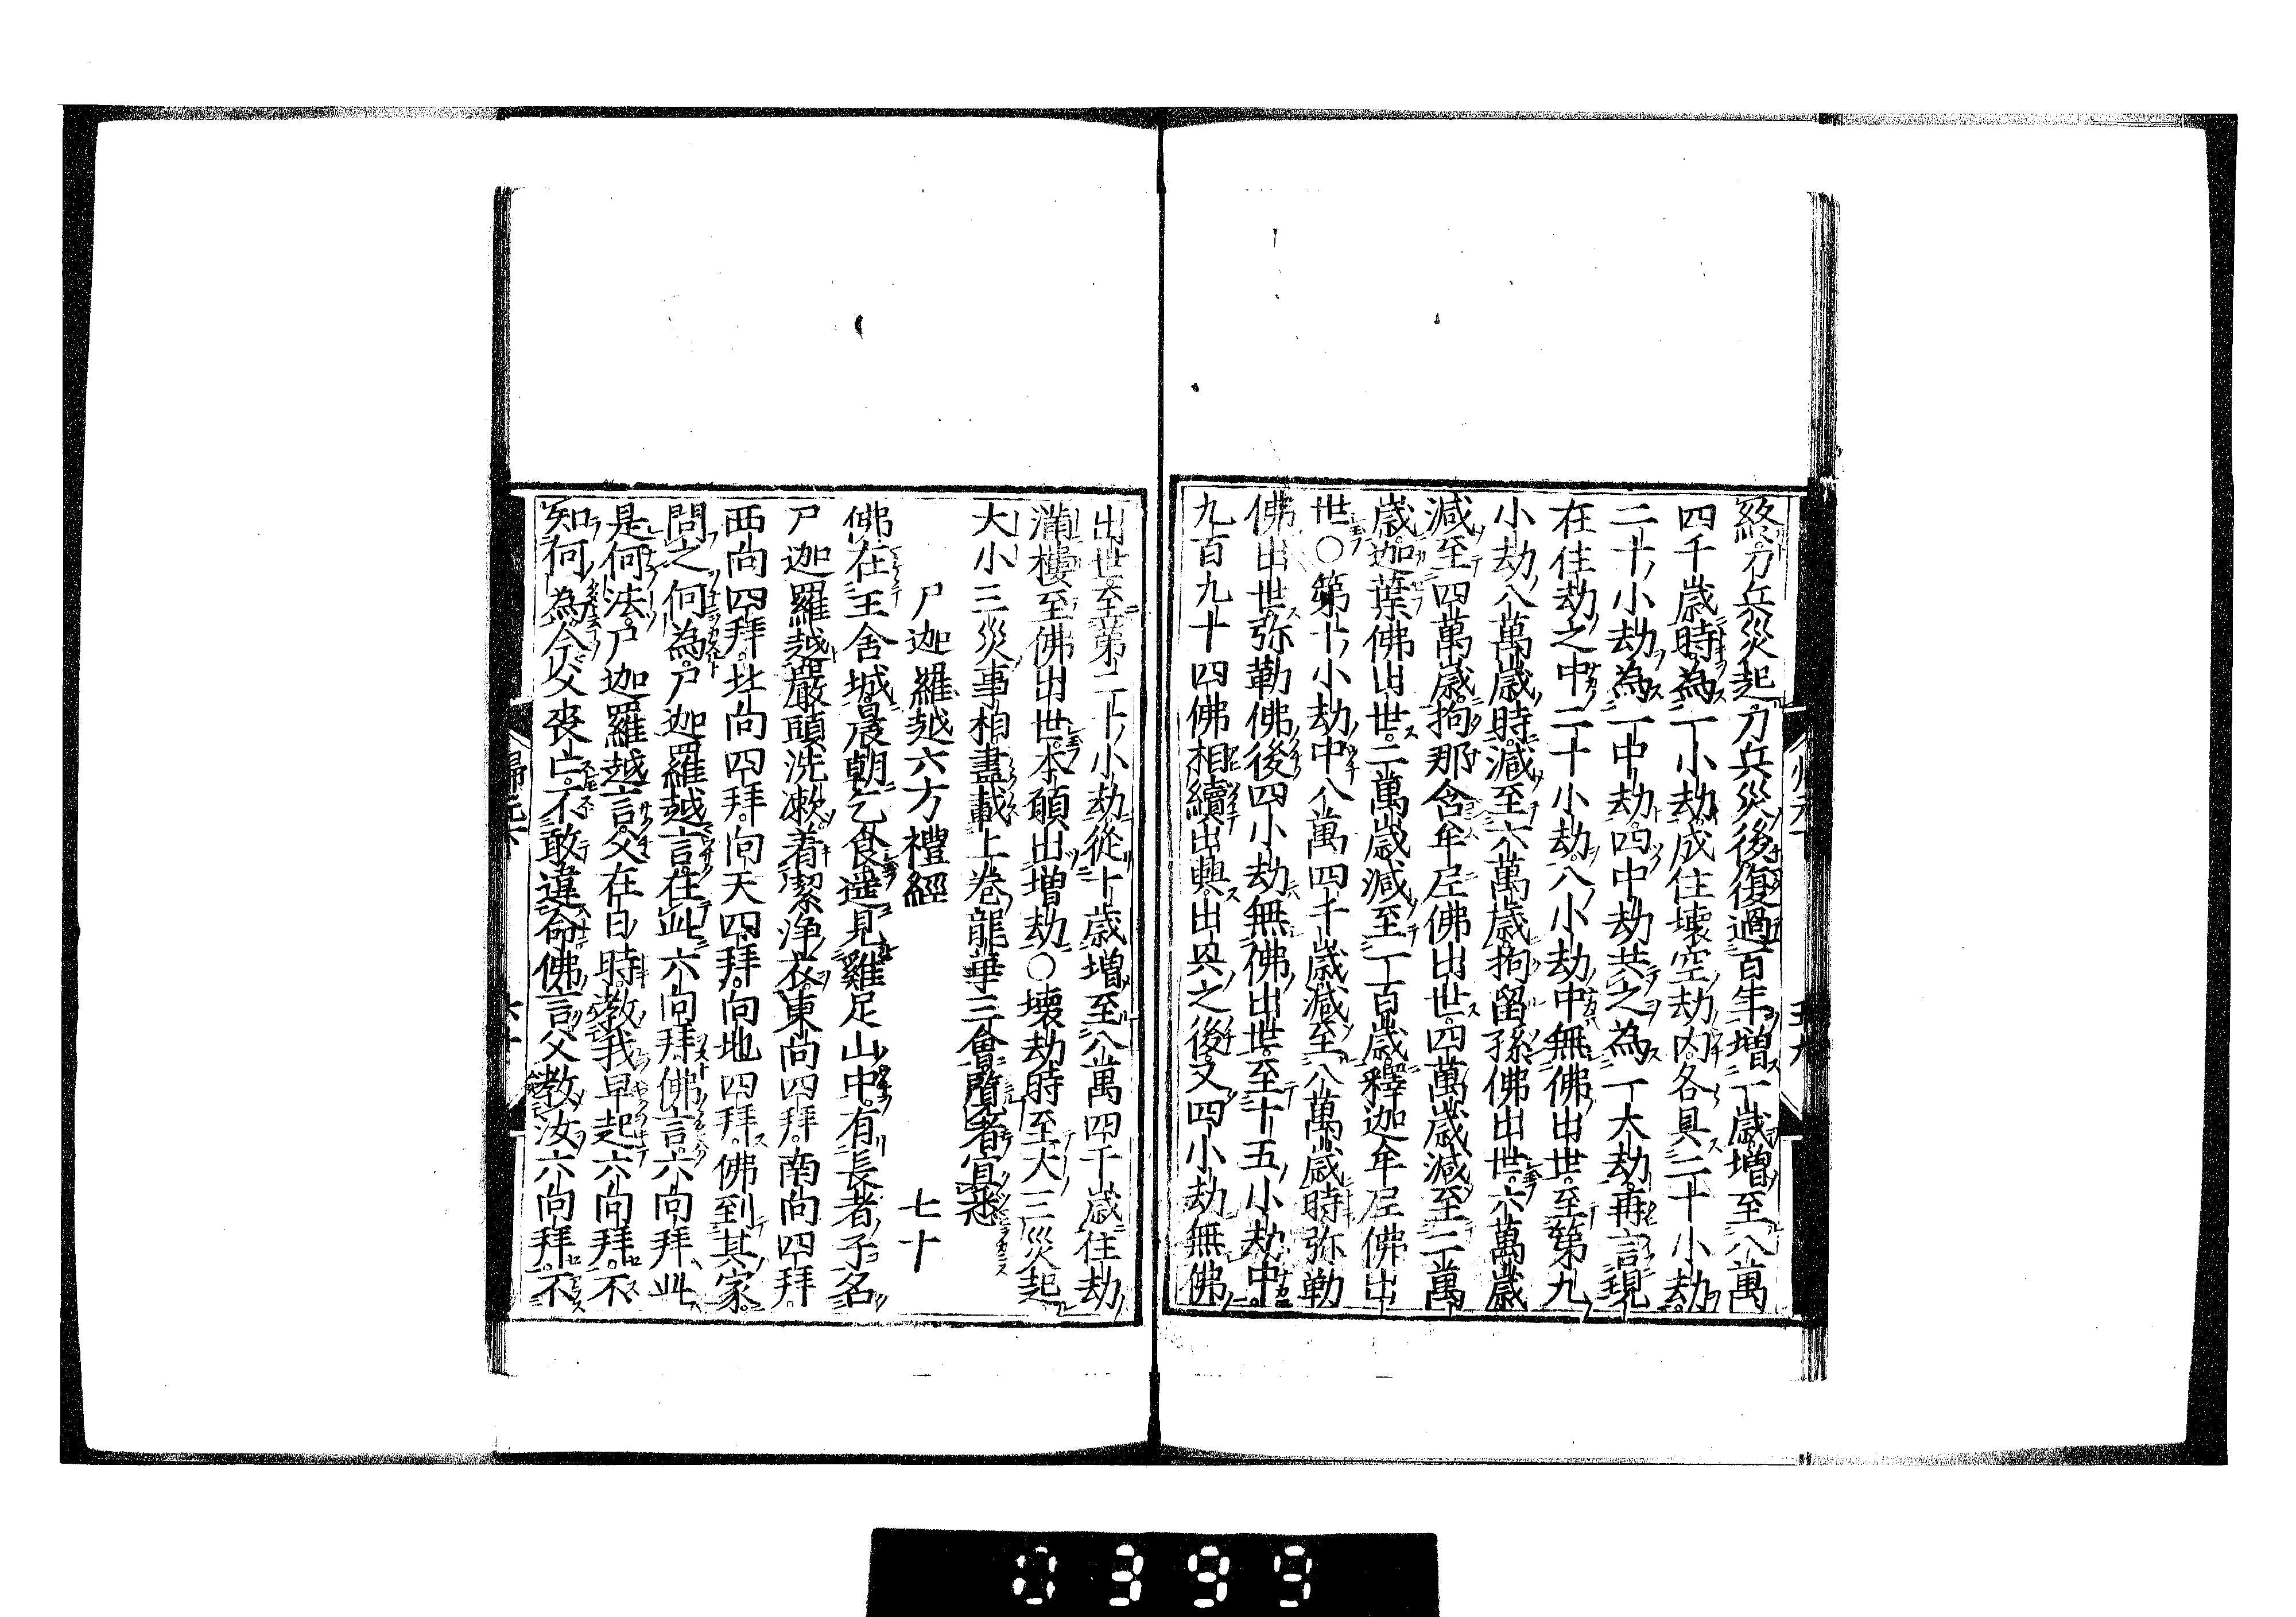 終。刀兵災起。刀兵災後復過百年増一歳増至八萬
四千歳時。為一小劫。成住壊空劫。各具二十小劫。
二十小劫為一中劫。四中劫共之為一大劫。再言現
在住劫之中二十小劫。八小劫中無佛出世。至第九
小劫八萬歳時。減至六萬歳。拘留孫佛出世。六萬歳
減至四萬歳。拘那含牟尼佛出世。四萬歳減至二萬
歳。迦葉佛出世。二萬歳減至一百歳。釋迦牟尼佛出
世○第十小劫中八萬四千歳減至八萬歳時弥勒
佛出世。弥勒佛後四小劫無佛出世。至十五小劫中。
九百九十四佛相續出興。出興之後。又四小劫無佛
出世。至第二十小劫。從十歳増至八萬四千歳住劫
滿。樓至佛出世。本願出増劫○壊劫時至大三災起
大小三災事相盡載上卷龍華三會。覧者宜悉
尸迦羅越六方禮經 七十
佛在王舎城。晨朝乞食。遥見雞足山中。有長者子名
尸迦羅越。嚴頭洗漱着潔浄衣。東向四拜。南向四拜。
西向四拜。北向四拜。向天四拜。向地四拜。佛到其家。
問之何為。尸迦羅越言。在此六向拜。佛言六向拜此
是何法。尸迦羅越言。父在日時。教我早起六向拜。不
知何為。今父喪亡。不敢違命。佛言父教汝六向拜。不
0399